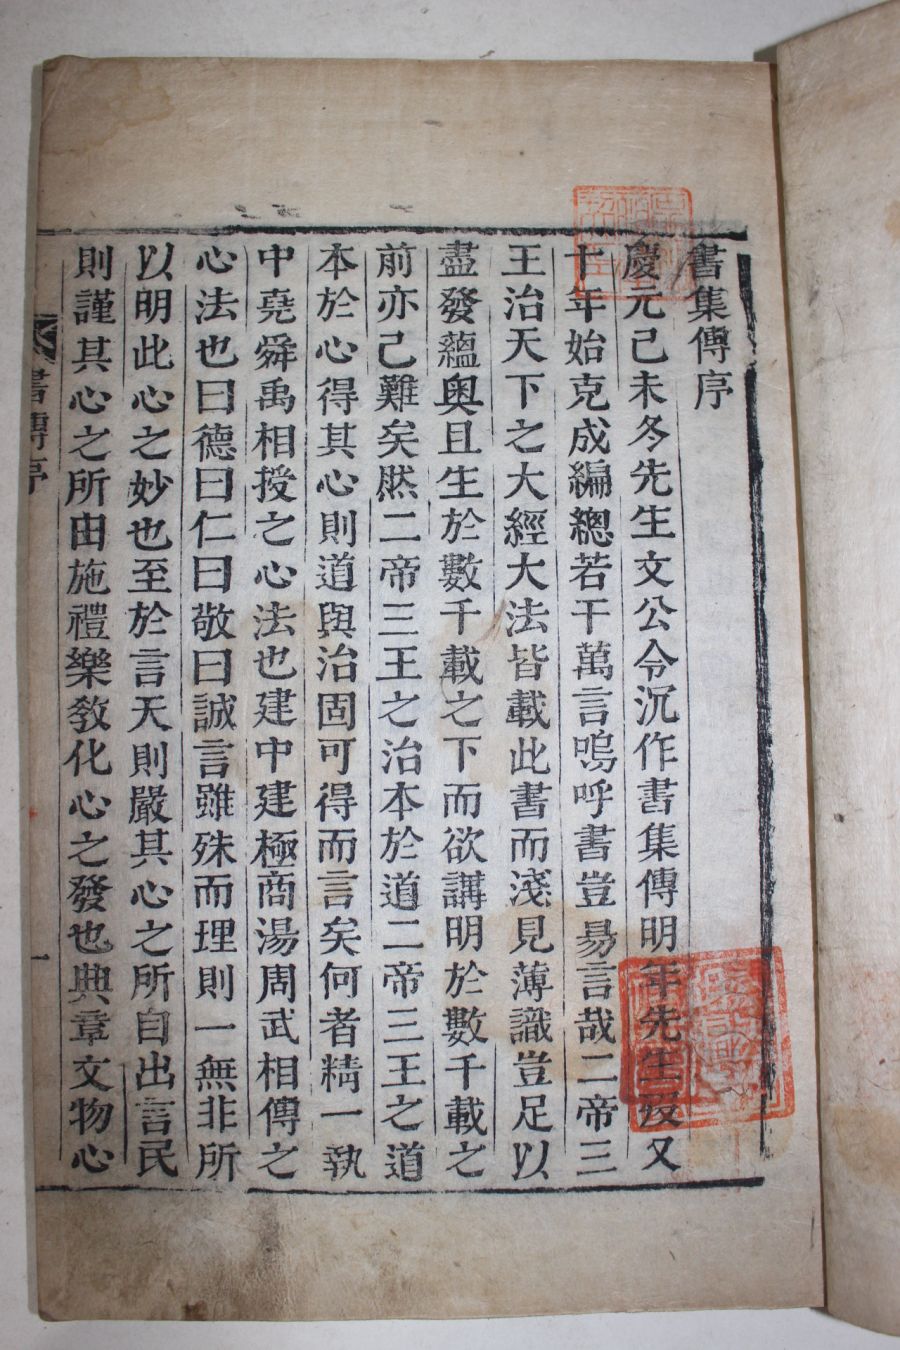 書集傳序
慶元己未冬先生文公令沉作書集傳明年先生歿又
十年始克成編總若干萬言嗚呼書豈易言哉二帝三
王治天下之大經大法皆載此書而淺見薄識豈足以
盡發蘊奧且生於數千載之下而欲講明於數千載之
前亦己難矣然二帝三王之治本於道二帝三王之道
本於心得其心則道與治固可得而言矣何者精一執
中堯舜禹相授之心法也建中建極商湯周武相傳之
心法也曰德曰仁曰敬曰誠言雖殊而理則一無非所
以明此心之妙也至於言天則嚴其心之所自出言民
則謹其心之所由施禮樂敎化心之發也典章文物心
書傳序
一